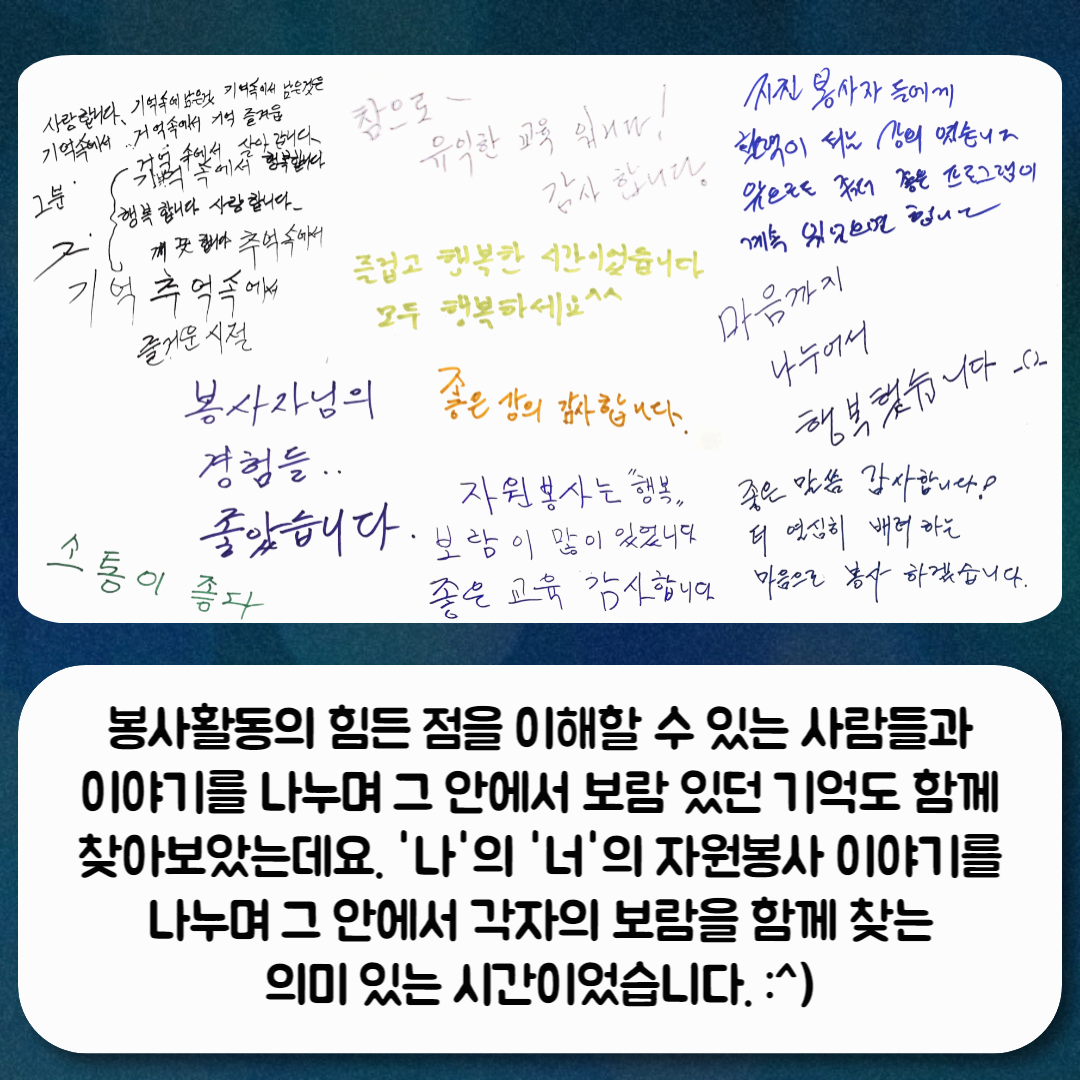 사랑합니다. 기억속에 남은것 기억속에서 남은것은
기억속에서 .. 기억속에서 기억 즐거움
기억 속에서 살아 갑니다.
그분. 기억 속에서 행복합니다
행복합니다 사랑합니다_
깨끗합니다 추억속에서
기억 추억속에서
즐거운 시절
참으로~
유익한 교육 입니다!
감사합니다.
지친 봉사자 들에게
활력이 되는 강의 였습니다
앞으로도 좋은 프로그램이
계속 있었으면 합니다
즐겁고 행복한 시간이었습니다
모두 행복하세요^^
마음까지
나누어서
행복했습니다
봉사자님의
경험들..
좋았습니다.
좋은 강의 감사합니다.
자원봉사는 "행복"
보람이 많이 있었습니다
좋은 교육 감사합니다
좋은 말씀 감사합니다!
더 열심히 배려하는
마음으로 봉사 하겠습니다.
소통이 좋다
봉사활동의 힘든 점을 이해할 수 있는 사람들과
이야기를 나누며 그 안에서 보람 있던 기억도 함께
찾아보았는데요. '나'의 '너'의 자원봉사 이야기를
나누며 그 안에서 각자의 보람을 함께 찾는
의미 있는 시간이었습니다. :^)